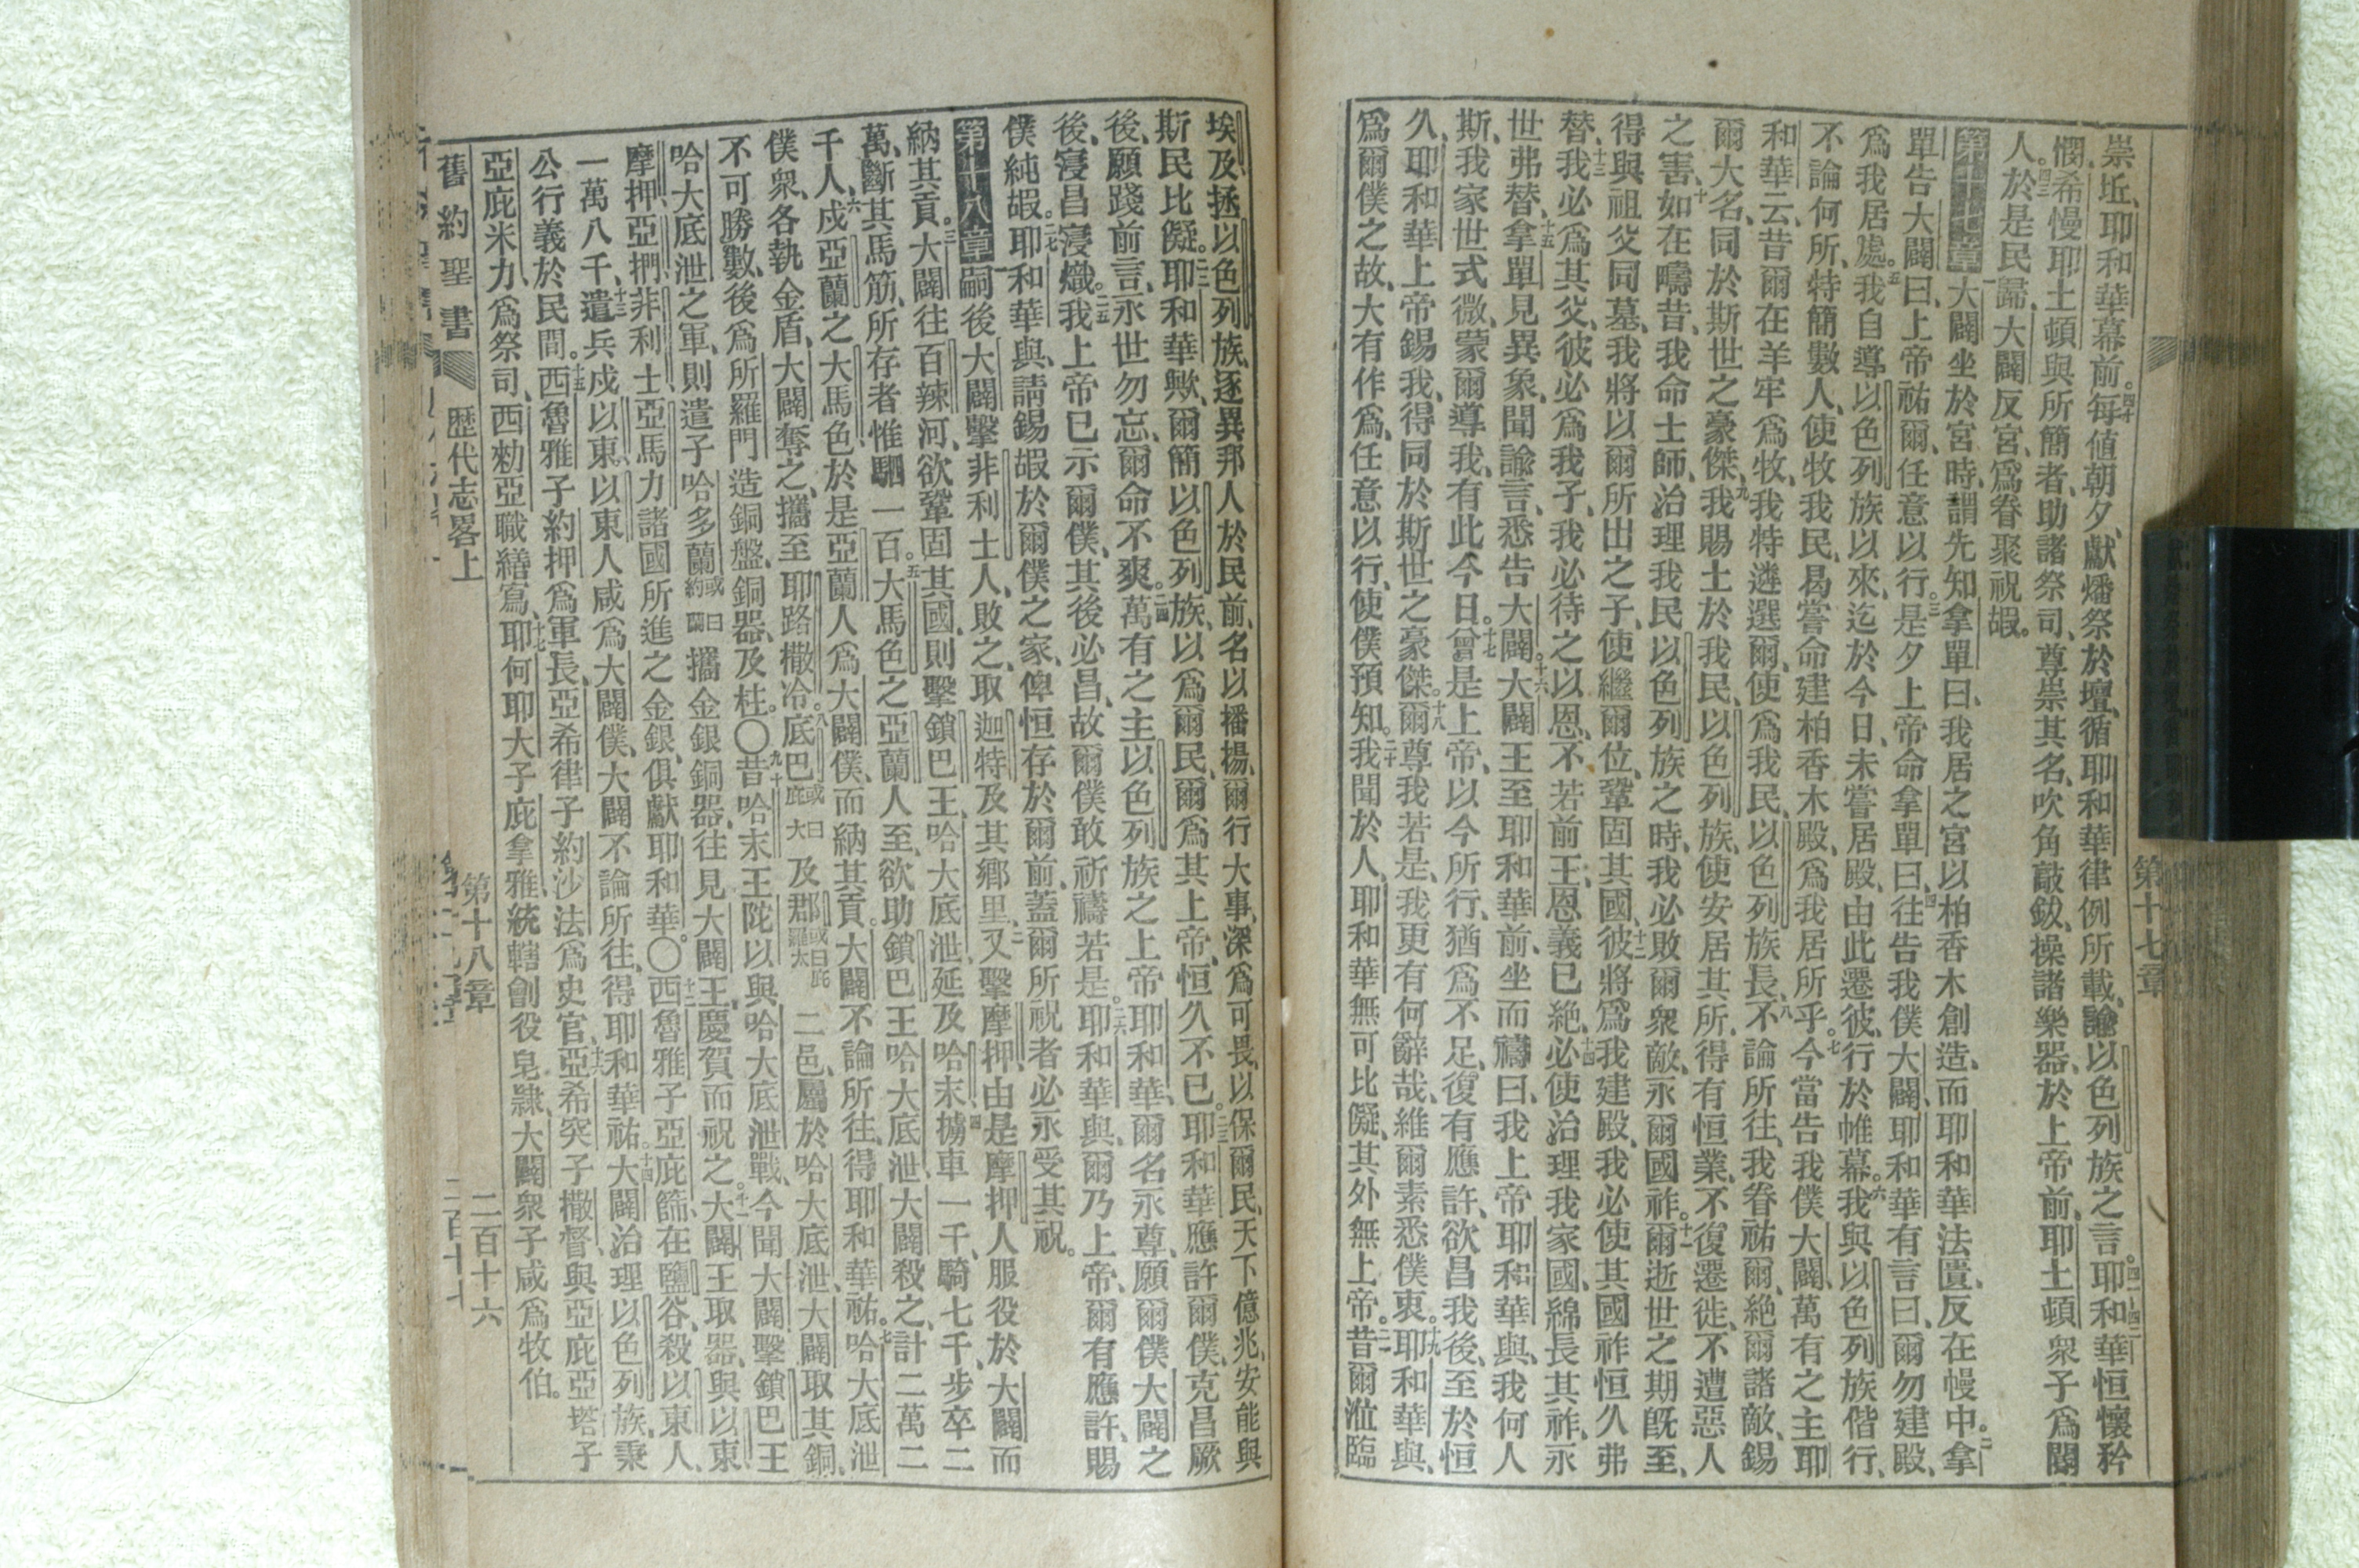 崇坵、耶和華幕前。四十每値朝夕、獻燔祭於壇、循耶和華律例所載、諭以色列族之言。四一四二耶和華恒懷矜
憫、希慢耶土頓與所簡者、助諸祭司、尊崇其名、吹角敲鈸、操諸樂器、於上帝前、耶土頓衆子爲閽
人。四三於是民歸、大闢反宮、爲眷聚祝嘏。
第十七章 一大闢坐於宮時、謂先知拿單曰、我居之宮以柏香木創造、而耶和華法匱、反在幔中。二拿
單告大闢曰、上帝祐爾、任意以行。三是夕上帝命拿單曰、四往告我僕大闢、耶和華有言曰、爾勿建殿、
爲我居處。五我自導以色列族以來、迄於今日、未嘗居殿、由此遷彼、行於帷幕。六我與以色列族偕行、
不論何所、特簡數人、使牧我民、曷嘗命建柏香木殿、爲我居所乎。七今當告我僕大闢、萬有之主耶
和華云、昔爾在羊牢爲牧、我特遴選爾、使爲我民、以色列族長、八不論所往、我眷祐爾、絕爾諸敵、錫
爾大名、同於斯世之豪傑、九我賜土於我民、以色列族、使安居其所、得有恒業、不復遷徙、不遭惡人
之害、十如在疇昔、我命士師、治理我民以色列族之時、我必敗爾衆敵、永爾國祚。十一爾逝世之期旣至、
得與祖父同墓、我將以爾所出之子、使繼爾位、鞏固其國、十二彼將爲我建殿、我必使其國祚恒久弗
替、十三我必爲其父、彼必爲我子、我必待之以恩、不若前王、恩義已絕、十四必使治理我家國、綿長其祚、永
世弗替、十五拿單見異象、聞諭言、悉告大闢。十六大闢王至耶和華前、坐而禱曰、我上帝耶和華與、我何人
斯、我家世式微、蒙爾導我、有此今日。十七曾是上帝、以今所行、猶爲不足、復有應許、欲昌我後、至於恒
久、耶和華上帝錫我、得同於斯世之豪傑。十八爾尊我若是、我更有何辭哉、維爾素悉僕衷、十九耶和華與、
爲爾僕之故、大有作爲、任意以行、使僕預知。二十我聞於人、耶和華無可比儗、其外無上帝。二一昔爾涖臨
第十七章
埃及拯以色列族、逐異邦人於民前、名以播揚、爾行大事、深爲可畏、以保爾民、天下億兆、安能與
斯民比儗。二二耶和華歟、爾簡以色列族、以爲爾民、爾爲其上帝、恒久不已。二三耶和華應許爾僕、克昌厥
後、願踐前言、永世勿忘、爾命不爽。二四萬有之主、以色列族之上帝耶和華、爾名永尊、願爾僕大闢之
後、寖昌寖熾。二五我上帝已示爾僕、其後必昌、故爾僕敢祈禱若是。二六耶和華與、爾乃上帝、爾有應許、賜
僕純嘏。二七耶和華與、請錫嘏於爾僕之家、俾恒存於爾前、蓋爾所祝者必永受其祝。
第十八章 一嗣後大闢擊非利士人、敗之、取迦特及其鄉里、二又擊摩押、由是摩押人服役於大闢、而
納其貢。三大闢往百辣河、欲鞏固其國、則擊鎖巴王、哈大底泄、延及哈末、四擄車一千、騎七千、步卒二
萬、斷其馬筋、所存者惟駟一百。五大馬色之亞蘭人至、欲助鎖巴王哈大底泄、大闢殺之、計二萬二
千人、六戍亞蘭之大馬色、於是亞蘭人爲大闢僕、而納其貢。大闢不論所往、得耶和華祐。七哈大底泄
僕衆、各執金盾、大闢奪之、攜至耶路撒冷。八底巴或曰庇大及郡或曰庇羅大二邑、屬於哈大底泄、大闢取其銅、
不可勝數、後爲所羅門造銅盤、銅器、及柱。〇九十昔哈末王陀以與哈大底泄戰、今聞大闢擊鎖巴王
哈大底泄之軍、則遣子哈多蘭或曰約蘭攜金銀銅器、往見大闢王、慶賀而祝之。十一大闢王取器、與以東、
摩押、亞捫、非利士、亞馬力諸國所進之金銀、俱獻耶和華。〇十二西魯雅子亞庇篩在鹽谷、殺以東人、
一萬八千、十三遣兵戍以東、以東人咸爲大闢僕、大闢不論所往、得耶和華祐。十四大闢治理以色列族、秉
公行義於民間。十五西魯雅子約押爲軍長、亞希律子約沙法爲史官、十六亞希突子撒督、與亞庇亞塔子
亞庇米力、爲祭司、西勑亞職繕寫、十七耶何耶大子庇拿雅、統轄劊役皂隸、大闢衆子咸爲牧伯。
舊約聖書 歷代志畧上 第十八章 二百十六